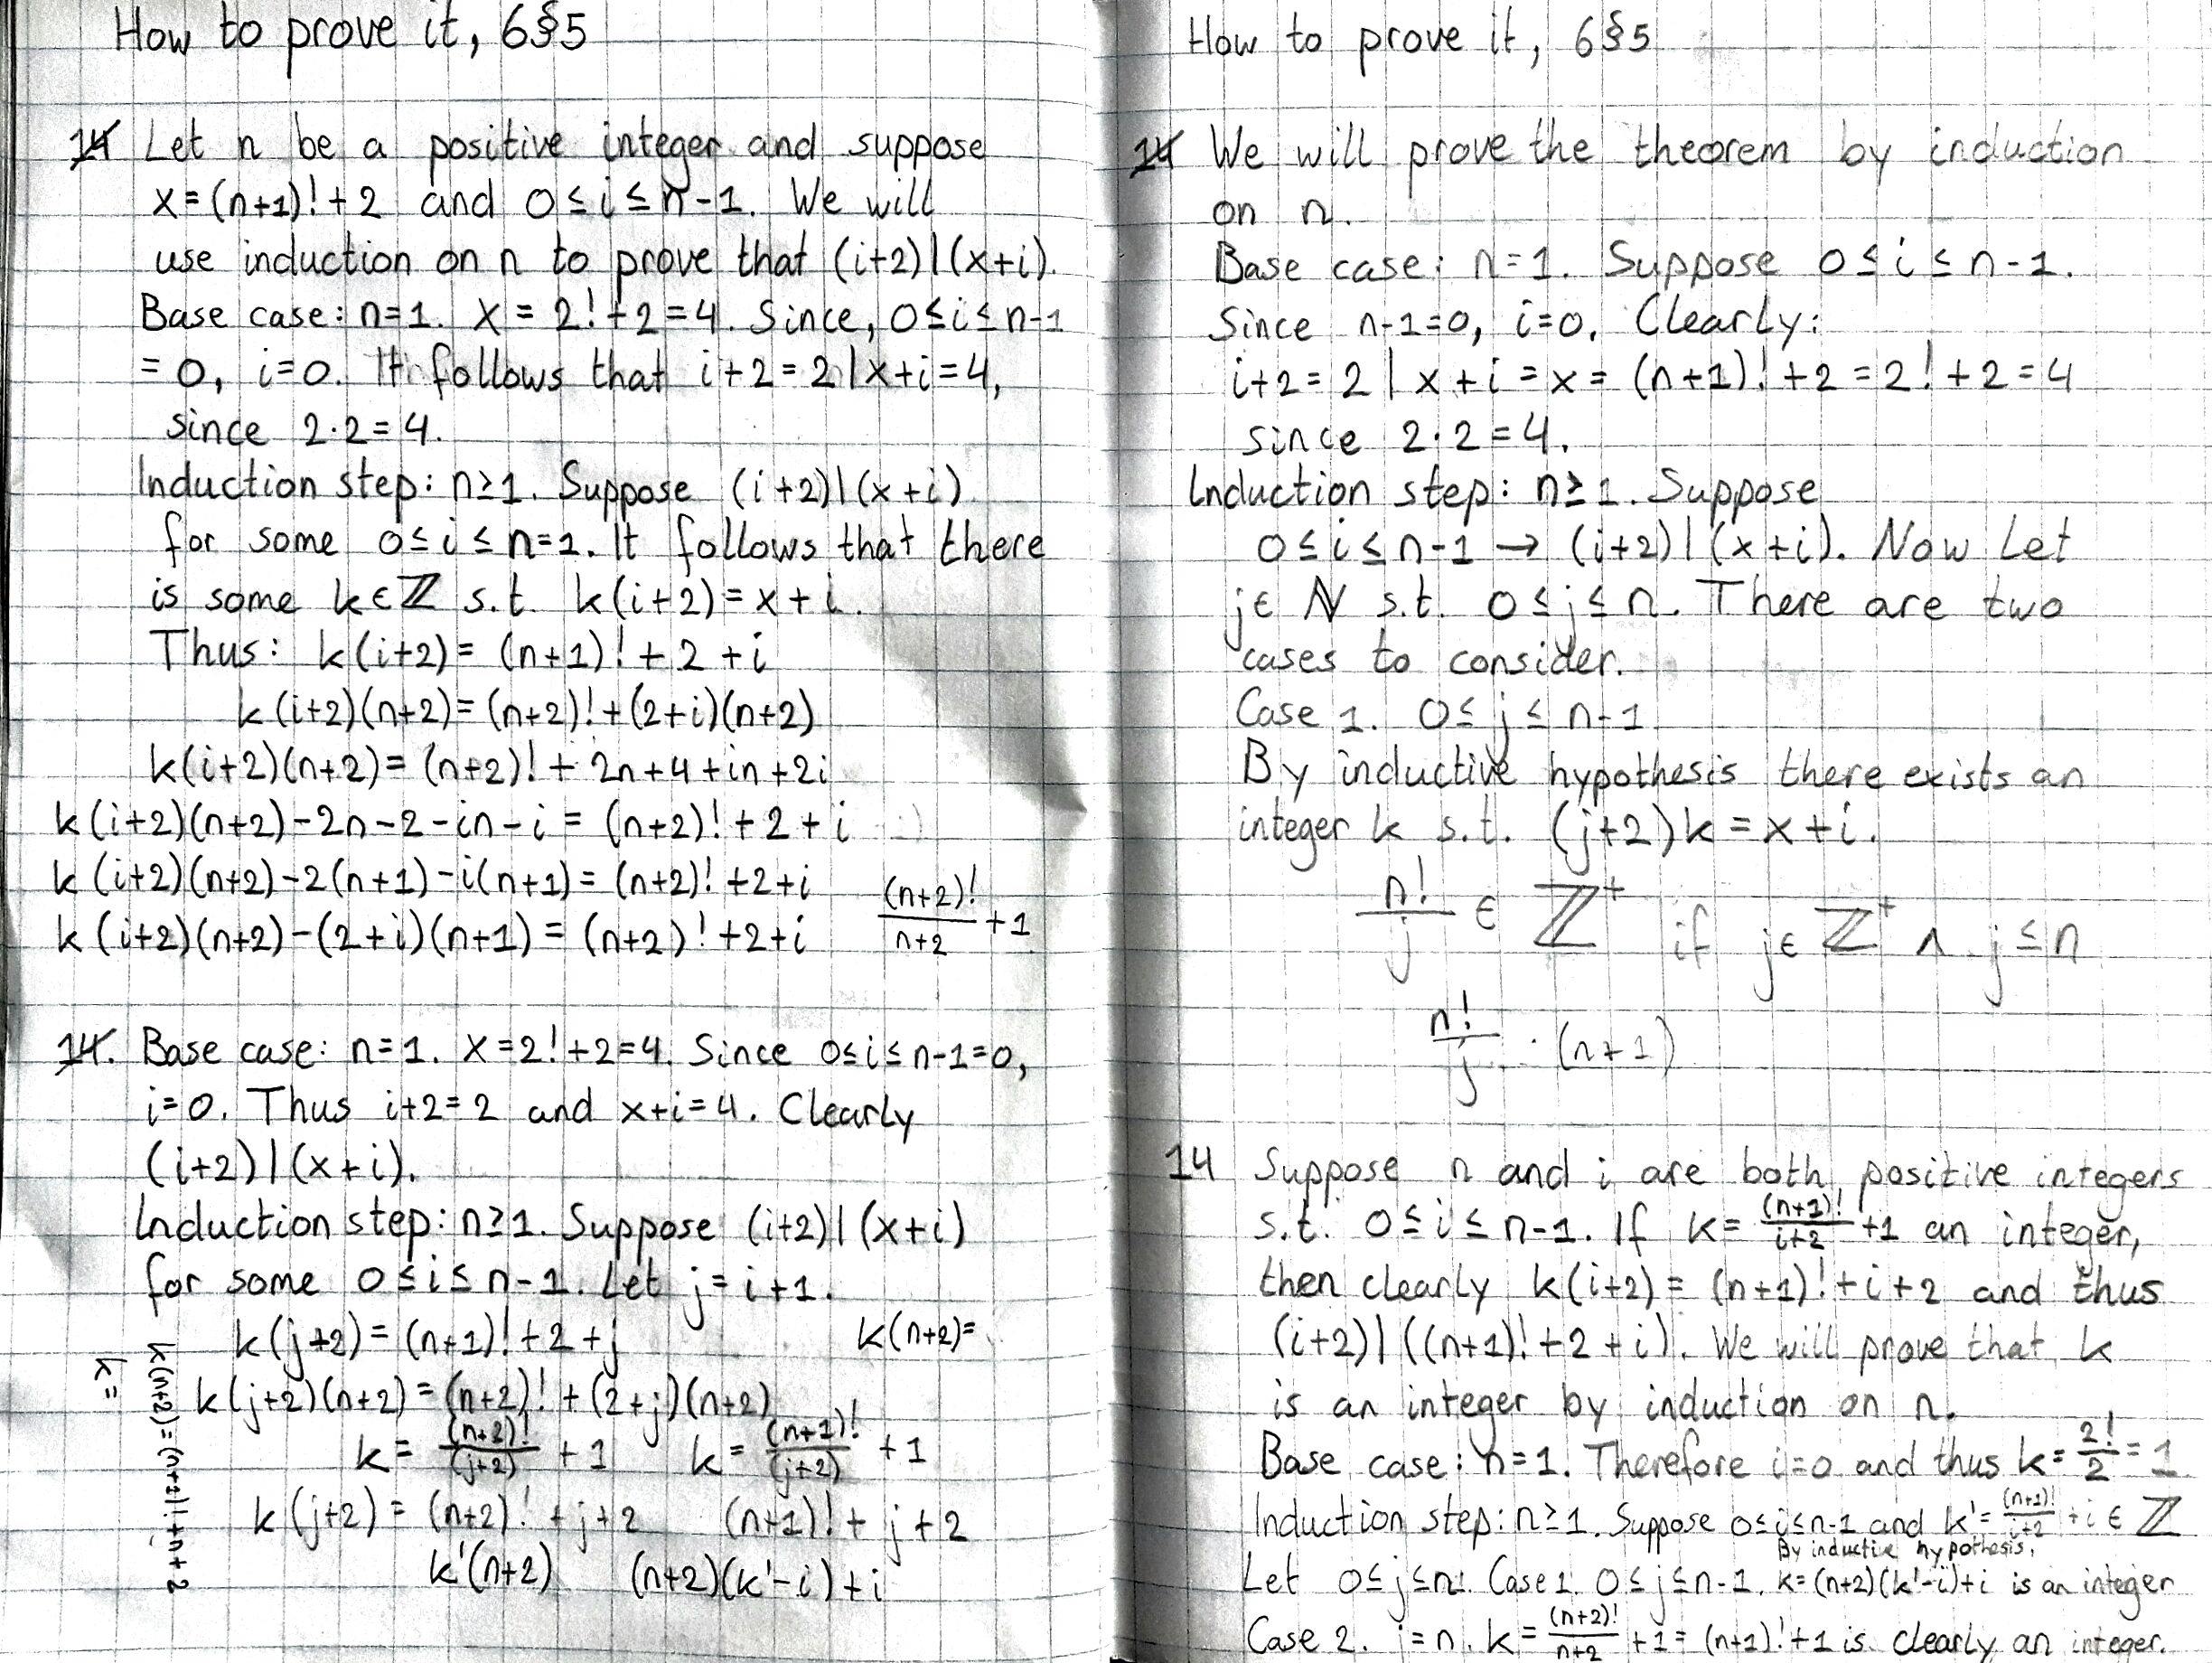 How to prove it, 6§5
14 Let n be a positive integer and suppose
x=(n+1)!+2 and 0≤i≤n-1. We will
use induction on n to prove that (i+2)|(x+i).
Base case: n=1. x = 2!+2=4. Since, 0≤i≤n-1
=0, i=0. It follows that i+2=2|x+i=4,
since 2·2=4.
Induction step: n≥1. Suppose (i+2)|(x+i)
for some 0≤i≤n=1. It follows that there
is some k∈ℤ s.t. k(i+2)=x+i.
Thus: k(i+2)= (n+1)!+2+i
k(i+2)(n+2)=(n+2)!+(2+i)(n+2)
k(i+2)(n+2)=(n+2)!+2n+4+in+2i
k(i+2)(n+2)-2n-2-in-i = (n+2)!+2+i
k(i+2)(n+2)-2(n+1)-i(n+1)=(n+2)!+2+i
k(i+2)(n+2)-(2+i)(n+1) = (n+2)!+2+i
(n+2)!/n+2 +1
14. Base case: n=1. x=2!+2=4. Since 0≤i≤n-1=0,
i=0. Thus i+2=2 and x+i=4. Clearly
(i+2)|(x+i).
Induction step: n≥1. Suppose (i+2)|(x+i)
for some 0≤i≤n-1. Let j=i+1.
k(j+2)=(n+1)!+2+j k(n+2)=
k(j+2)(n+2)=(n+2)!+(2+j)(n+2)
k= (n+2)!/(j+2) +1 k= (n+1)!/(j+2) +1
k(j+2)= (n+2)!+j+2 (n+1)!+j+2
k'(n+2) (n+2)(k'-i)+i
k(n+2)=(n+2)!+n+2
k=
How to prove it, 6§5
14 We will prove the theorem by induction
on n.
Base case: n=1. Suppose 0≤i≤n-1.
Since n-1=0, i=0. Clearly:
i+2=2|x+i=x=(n+1)!+2=2!+2=4
since 2·2=4.
Induction step: n≥1. Suppose
0≤i≤n-1→(i+2)|(x+i). Now Let
j∈ℕ s.t. 0≤j≤n. There are two
cases to consider.
Case 1. 0≤j≤n-1
By inductive hypothesis there exists an
integer k s.t. (j+2)k=x+i.
n!/j ∈ ℤ⁺ if j∈ℤ⁺ ∧ j≤n
n!/j · (n+1)
14 Suppose n and i are both positive integers
s.t. 0≤i≤n-1. If k= (n+1)!/i+2 +1 an integer,
then clearly k(i+2)=(n+1)!+i+2 and thus
(i+2)|((n+1)!+2+i). We will prove that k
is an integer by induction on n.
Base case: n=1. Therefore i=0 and thus k= 2!/2 = 1
Induction step: n≥1. Suppose 0≤i≤n-1 and k'= (n+1)!/i+2 +i ∈ ℤ
By inductive hypothesis,
Let 0≤j≤n. Case 1. 0≤j≤n-1. k=(n+2)(k'-i)+i is an integer
Case 2. j=n. k= (n+2)!/n+2 +1=(n+1)!+1 is clearly an integer.